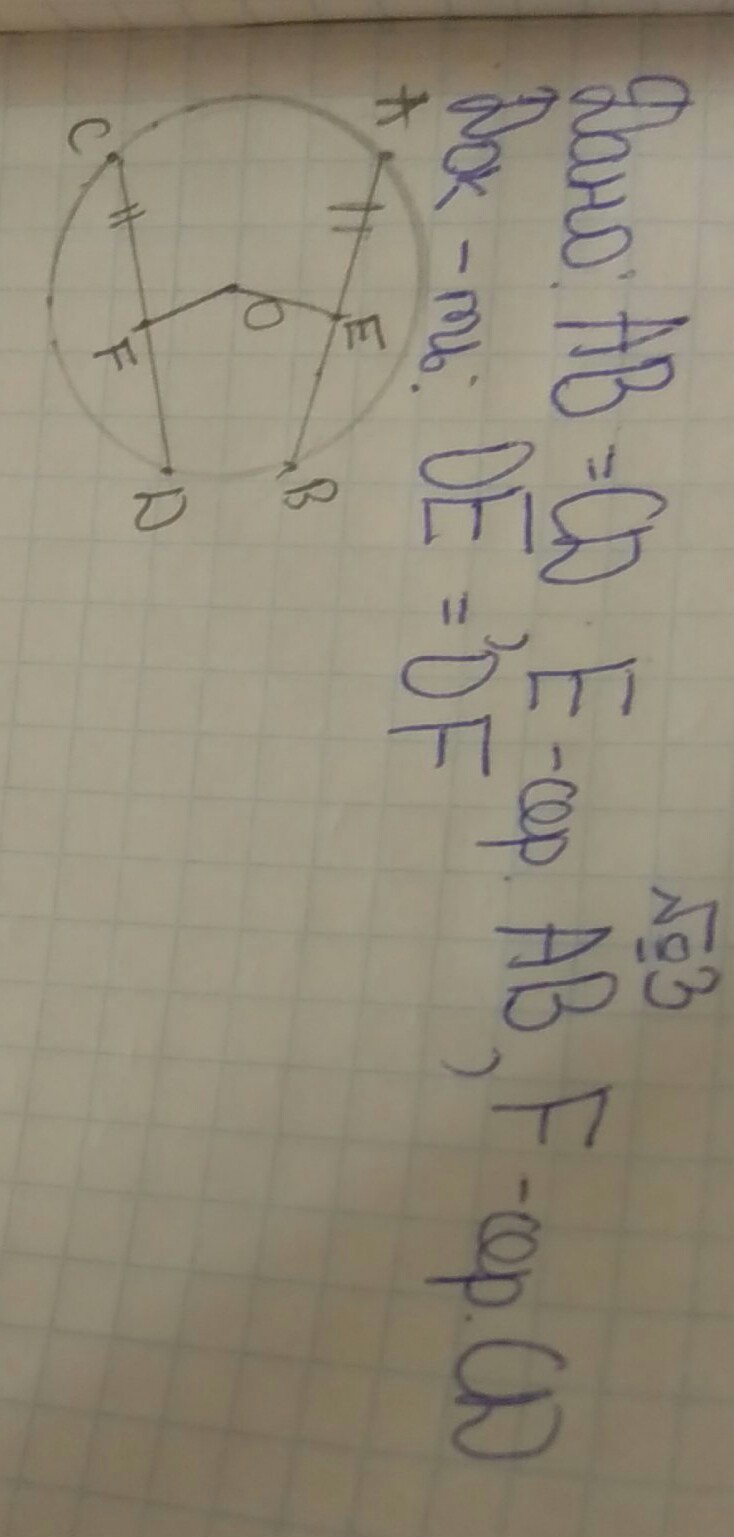 №3
Дано: AB = CD, E - сер. AB, F - сер. CD
Док - ть: OE = OF
A
E
B
O
C
F
D